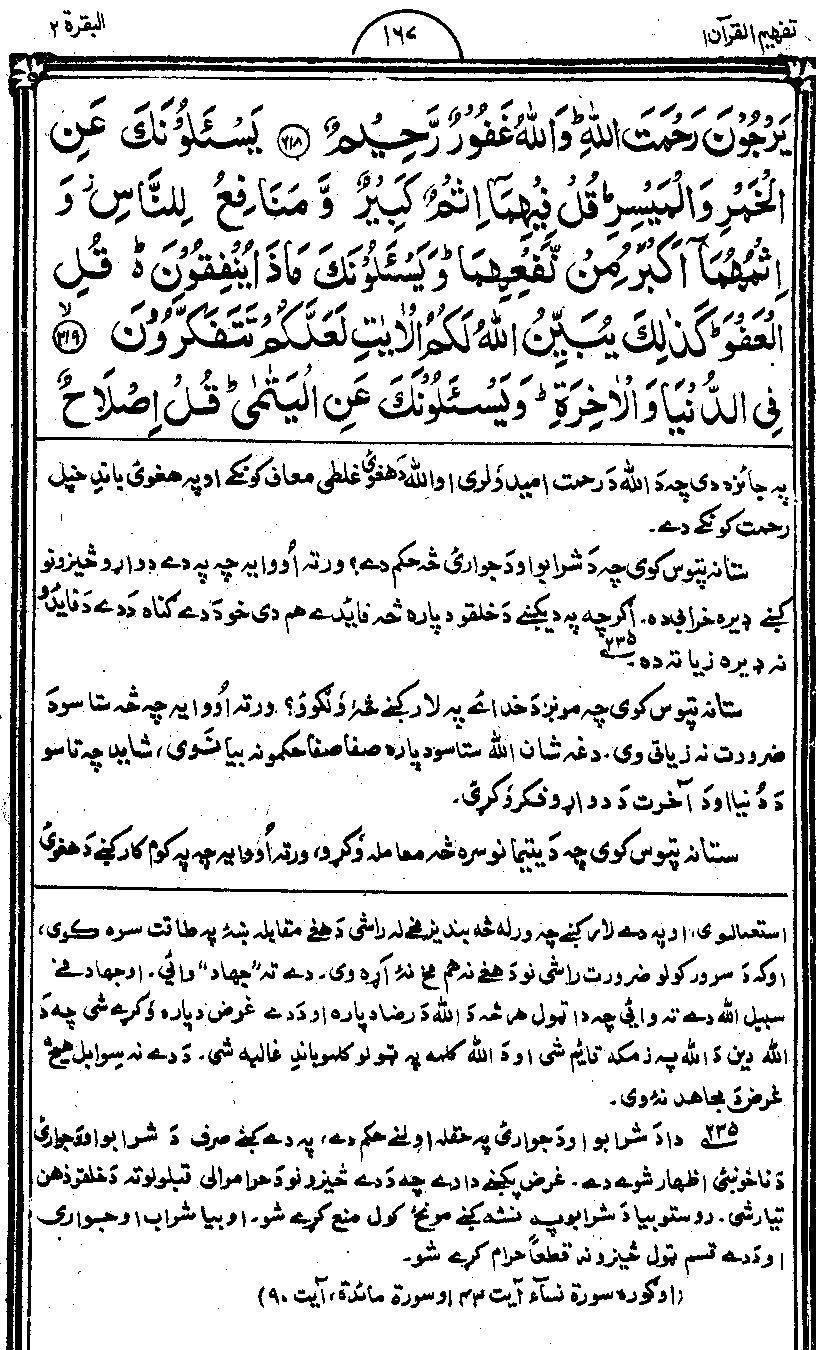 تفهيم القرآن ۱ ۱۶۷ البقرة ۲
يَرْجُوْنَ رَحْمَتَ اللّٰهِ ؕ وَاللّٰهُ غَفُوْرٌ رَّحِيْمٌ ۲۱۸ يَسْـَٔلُوْنَكَ عَنِ
الْخَمْرِ وَالْمَيْسِرِ ؕ قُلْ فِيْهِمَآ اِثْمٌ كَبِيْرٌ وَّ مَنَافِعُ لِلنَّاسِ ؗ وَ
اِثْمُهُمَآ اَكْبَرُ مِنْ نَّفْعِهِمَا ؕ وَيَسْـَٔلُوْنَكَ مَاذَا يُنْفِقُوْنَ ؕ قُلِ
الْعَفْوَ ؕ كَذٰلِكَ يُبَيِّنُ اللّٰهُ لَكُمُ الْاٰيٰتِ لَعَلَّكُمْ تَتَفَكَّرُوْنَ ۲۱۹
فِي الدُّنْيَا وَالْاٰخِرَةِ ؕ وَيَسْـَٔلُوْنَكَ عَنِ الْيَتٰمٰى ؕ قُلْ اِصْلَاحٌ
په جائزه دی چه دَ الله دَ رحمت امید وَلری او الله دَ هغوئ غلطی معاف کونکے او په هغوئ باندِ خپل
رحمت کونکے دے۔
ستا نه تپوس کوی چه دَ شرابو او دَ جوارئ څه حکم دے؟ ورته اُووایه چه په دے دواړو څیزونو
کښے ډیره خرابی ده۔ اګرچه په دیکښے دَ خلقو دپاره څه فایٔدے هم دی خو دَ دے ګناه دَ دے دَ فایٔدو
نه ډیره زیاته ده۔ ۲۳۵
ستا نه تپوس کوی چه مونږ دَ خدائے په لار کښے څهٔ وَلګوؤ؟ ورته اُووایه چه څه ستاسو دَ
ضرورت نه زیاتی وی۔ دغه شان الله ستاسو دپاره صفا صفا حکمونه بیانوی، شاید چه تاسو
دَ دُنیا او دَ آخرت دَ دواړو فکر وَکړئ۔
ستا نه تپوس کوی چه دَ یتیمانو سره څه معامله وَکړو، ورته اُووایه چه په کوم کار کښے دَ هغوئ
استعمالوی، او په دے لار کښے چه ورله څه بندیز مخے له راشی دَ هغے مقابله ښهٔ په طاقت سره کوی،
او که دَ سر ورکولو ضرورت راشی نو دَ هغے نه هم مخ نهٔ اَړوی۔ دے ته "جهاد" وائی۔ او جهاد فے
سبیل الله دے ته وائی چه دا ټول هر څه دَ الله دَ رضا دپاره او دَ دے غرض دپاره وَکړے شی چه دَ
الله دین دَ الله په زمکه قائم شی او دَ الله کلمه په ټولو کلمو باندِ غالبه شی۔ دَ دے نه سِوا بل هیڅ
غرض دَ مجاهد نهٔ وی۔
۲۳۵ دا دَ شرابو او دَ جوارئ په حقله اولنے حکم دے، په دے کښے صرف دَ شرابو او دَ جوارئ
دَ ناخوښئ اظهار شوے دے۔ غرض پکښے دا دے چه دَ دے څیزونو دَ حرام والی قبلولو ته دَ خلقو ذهن
تیار شی۔ روستو بیا دَ شرابو په نشه کښے مونځ کول منع کړے شو۔ او بیا شراب او جواری
او دَ دے قسم ټول څیزونه قطعاً حرام کړے شو۔
(اوګوره سورة نسآء آیت ۴۳ او سورة مائدة، آیت ۹۰)